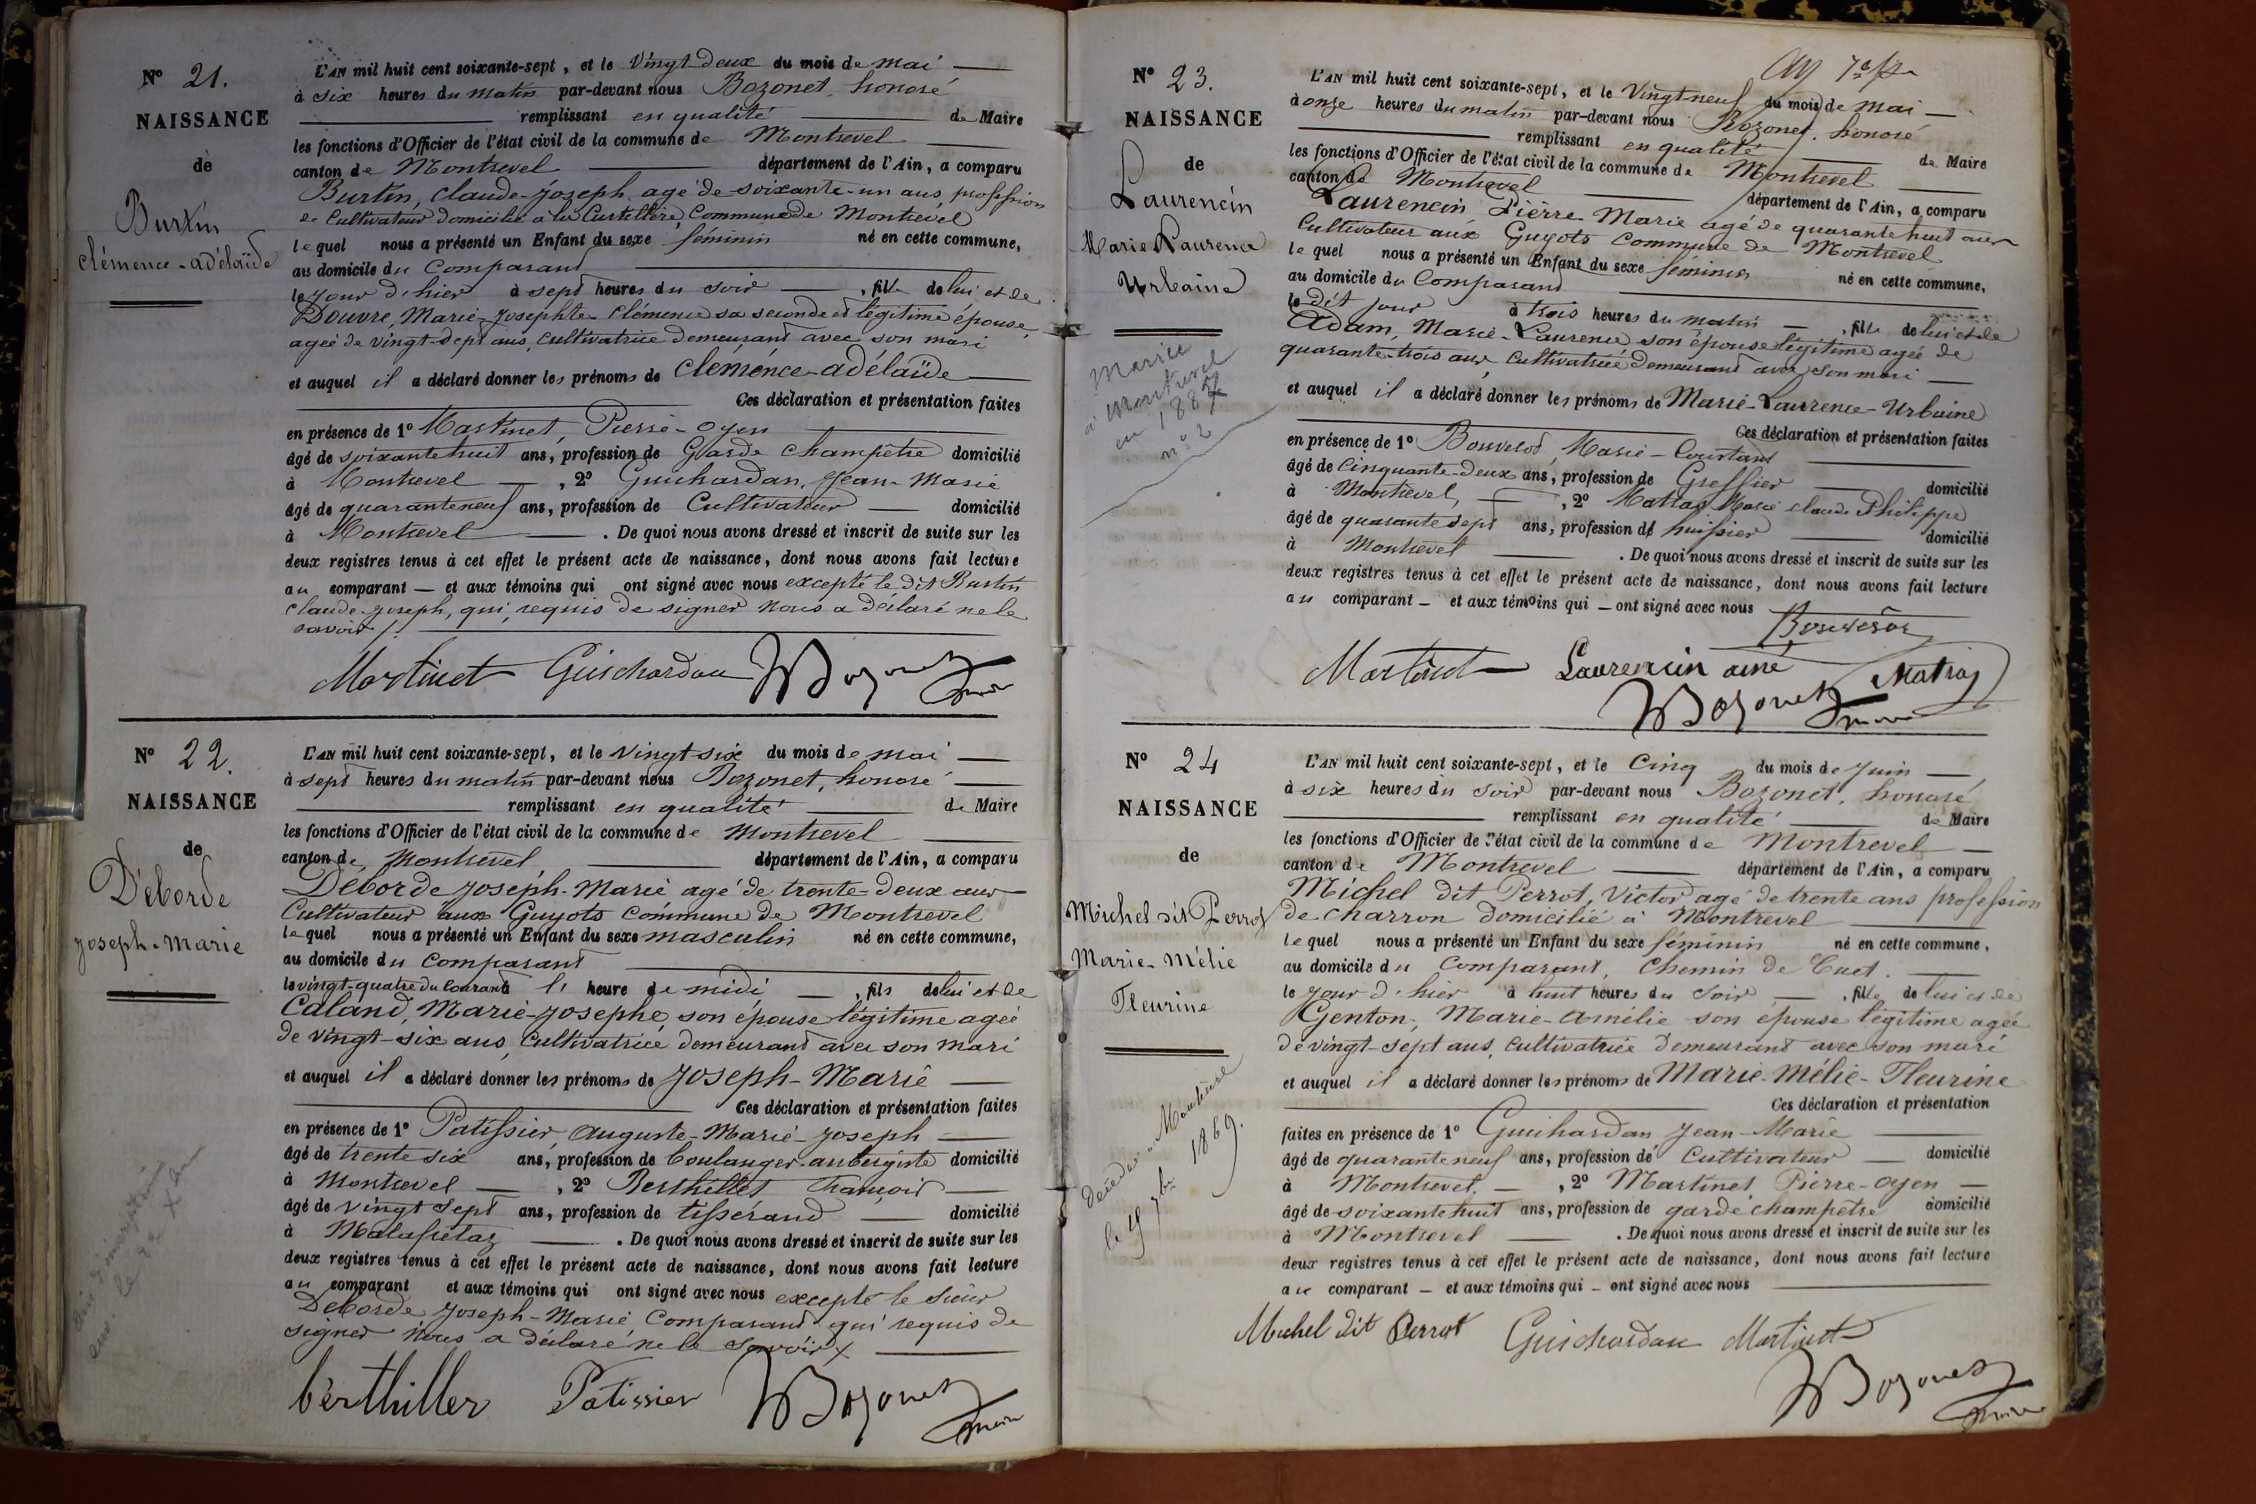 N° 21.
NAISSANCE
de
Burtin
clémence-adélaïde
L'AN mil huit cent soixante-sept, et le Vingt-deux du mois de mai
à six heures du matin par-devant nous Bozonet, honoré
remplissant en qualité de Maire
les fonctions d'Officier de l'état civil de la commune de Montrevel
canton de Montrevel département de l'Ain, a comparu
Burtin, claude-joseph agé de soixante-un ans, profession
de Cultivateur domicilié à la Curtillière, Commune de Montrevel
lequel nous a présenté un Enfant du sexe féminin né en cette commune,
au domicile du Comparant
le jour d'hier à sept heures du soir, fille de lui et de
Douvre, Marie-josephte-Clémence sa seconde et légitime épouse,
agée de vingt-sept ans, cultivatrice demeurant avec son mari
et auquel il a déclaré donner les prénoms de Clémence-adélaïde
Ces déclaration et présentation faites
en présence de 1° Martinet, Pierre-oyen
âgé de soixante huit ans, profession de Garde champêtre domicilié
à Montrevel, 2° Guichardan, Jean-Marie
âgé de quarante neuf ans, profession de Cultivateur domicilié
à Montrevel. De quoi nous avons dressé et inscrit de suite sur les
deux registres tenus à cet effet le présent acte de naissance, dont nous avons fait lecture
au comparant et aux témoins qui ont signé avec nous excepté le dit Burtin
claude-joseph, qui, requis de signer nous a déclaré ne le
savoir //.
Martinet Guichardan Bozonet
maire
N° 22.
NAISSANCE
de
Déborde
joseph-marie
L'AN mil huit cent soixante-sept, et le Vingt-six du mois de mai
à sept heures du matin par-devant nous Bozonet, honoré
remplissant en qualité de Maire
les fonctions d'Officier de l'état civil de la commune de Montrevel
canton de Montrevel département de l'Ain, a comparu
Déborde joseph-Marie agé de trente-deux ans
Cultivateur aux Guyots commune de Montrevel
lequel nous a présenté un Enfant du sexe masculin né en cette commune,
au domicile du Comparant
le vingt-quatre du courant à l'heure de midi, fils de lui et de
Caland, Marie-josephe son épouse légitime agée
de vingt-six ans, Cultivatrice demeurant avec son mari
et auquel il a déclaré donner les prénoms de Joseph-Marie
Ces déclaration et présentation faites
en présence de 1° Patissier, auguste-Marie-joseph
âgé de trente six ans, profession de boulanger-aubergiste domicilié
à Montrevel, 2° Berthillet François
âgé de vingt sept ans, profession de tisserand domicilié
à Malafretaz. De quoi nous avons dressé et inscrit de suite sur les
deux registres tenus à cet effet le présent acte de naissance, dont nous avons fait lecture
au comparant et aux témoins qui ont signé avec nous excepté le sieur
Déborde joseph-Marie Comparant qui requis de
signer nous a déclaré ne le savoir
berthiller Patissier Bozonet
maire
N° 23.
NAISSANCE
de
Laurencin
Marie Laurence
Urbaine
Mariée
à Montrevel
en 1887
n° 2
L'AN mil huit cent soixante-sept, et le Vingt-neuf du mois de mai
à onze heures du matin par-devant nous Bozonet, honoré
remplissant en qualité de Maire
les fonctions d'Officier de l'état civil de la commune de Montrevel
canton de Montrevel département de l'Ain, a comparu
Laurencin Pierre Marie agé de quarante huit ans
Cultivateur aux Guyots Commune de Montrevel
lequel nous a présenté un Enfant du sexe féminin né en cette commune,
au domicile du Comparant
le dit jour à trois heures du matin, fille de lui et de
Adam, Marie-Laurence son épouse légitime agée de
quarante-trois ans, Cultivatrice demeurant avec son mari
et auquel il a déclaré donner les prénoms de Marie-Laurence-Urbaine
Ces déclaration et présentation faites
en présence de 1° Bouverod, Marie-Courtant
âgé de cinquante-deux ans, profession de Greffier domicilié
à Montrevel, 2° Matras Marie Claude Philippe
âgé de quarante sept ans, profession d' huissier domicilié
à Montrevel. De quoi nous avons dressé et inscrit de suite sur les
deux registres tenus à cet effet le présent acte de naissance, dont nous avons fait lecture
au comparant et aux témoins qui ont signé avec nous
Martinet Laurencin ainé Matras
Bozonet
maire
N° 24
NAISSANCE
de
Michel dit Perrot
Marie-Mélie
Fleurine
décédée à Montrevel
le 4 7bre 1869.
L'AN mil huit cent soixante-sept, et le Cinq du mois de juin
à six heures du soir par-devant nous Bozonet, honoré
remplissant en qualité de Maire
les fonctions d'Officier de l'état civil de la commune de Montrevel
canton de Montrevel département de l'Ain, a comparu
Michel dit Perrot, Victor agé de trente ans profession
de charron domicilié à Montrevel
lequel nous a présenté un Enfant du sexe féminin né en cette commune,
au domicile du Comparant, chemin de Cuet.
le jour d'hier à huit heures du soir, fille de lui et de
Genton, Marie-amélie son épouse légitime agée
de vingt-sept ans, cultivatrice demeurant avec son mari
et auquel il a déclaré donner les prénoms de Marie-Mélie-Fleurine
Ces déclaration et présentation
faites en présence de 1° Guichardan Jean-Marie
âgé de quarante neuf ans, profession de Cultivateur domicilié
à Montrevel, 2° Martinet Pierre-oyen
âgé de soixante huit ans, profession de garde champêtre domicilié
à Montrevel. De quoi nous avons dressé et inscrit de suite sur les
deux registres tenus à cet effet le présent acte de naissance, dont nous avons fait lecture
au comparant et aux témoins qui ont signé avec nous
Michel dit Perrot Guichardan Martinet
Bozonet
maire